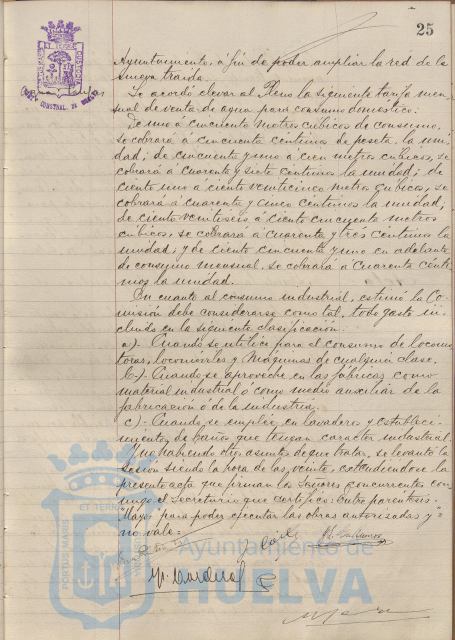 25
Ayuntamiento, a fin de poder ampliar la red de la
nueva traida.
Se acordó elevar al Pleno la siguiente tarifa men-
sual de venta de agua para consumo doméstico:
De uno á cincuenta metros cúbicos de consumo,
se cobrará á cincuenta céntimos de peseta, la uni-
dad; de cincuenta y uno á cien metros cúbicos, se
cobrará á cuarenta y siete céntimos la unidad; de
ciento uno a ciento veinticinco metros cúbicos, se
cobrará á cuarenta y cinco céntimos la unidad,
de ciento veintiseis á ciento cincuenta metros
cúbicos, se cobrará á cuarenta y tres céntimos la
unidad; y de ciento cincuenta y uno en adelante
de consumo mensual, se cobrará á cuarenta cénti-
mos la unidad.
En cuanto al consumo industrial, estimó la Co-
misión debe considerarse como tal, todo gasto in-
cluido en la siguiente clasificación:
a).- Cuando se utilice para el consumo de locomo-
toras, locomóviles y Máquinas de cualquier clase.
b).- Cuando se aproveche en las fábricas como
material industrial ó como medio auxiliar de la
fabricación ó de la industria.
c).- Cuando se emplee en lavaderos y estableci-
mientos de baño que tengan caracter industrial.
Y no habiendo otro asunto de que tratar, se levantó la
sesión siendo la hora de las veinte, extendiendose la
presente acta que firman los Señores concurrentes con-
migo el Secretario que certifico: Entre parentesis-
"Mayo" para poder ejecutar las obras autorizadas y"-
no vale:-
Ayuntamiento de
HUELVA
PORTUS MARIS
ET TERRE